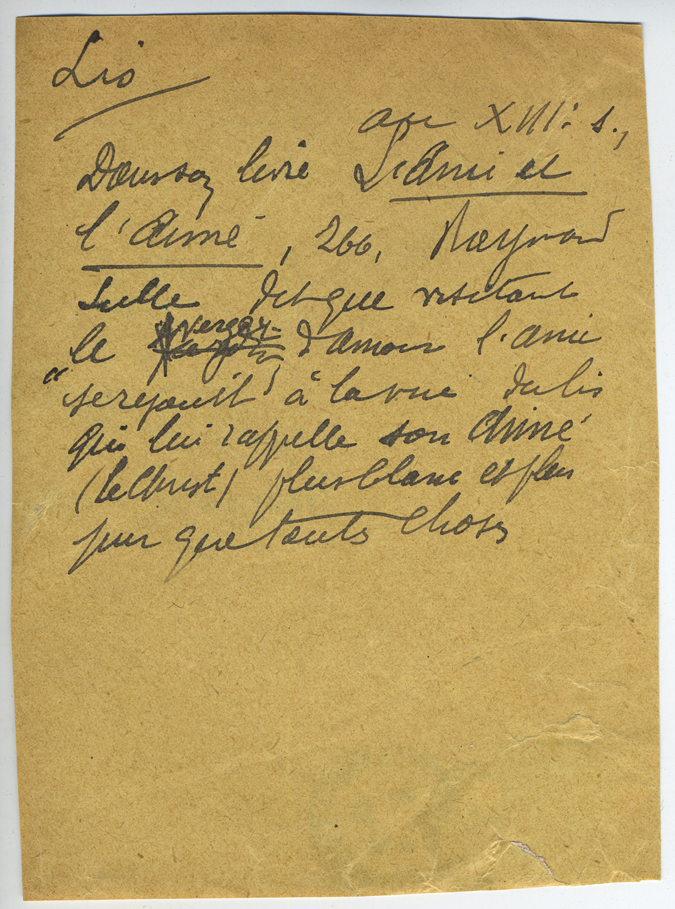 Lis
au XIII: s.,
Dans son livre L'Ami et
l'Aimé, 266, Raymond
Lulle dit que visitant
le verger d'amour l'ami
"se rejouit à la vue du lis
qui lui rappelle son Aimé
(le Christ) plus blanc et plus
pur que toutes choses